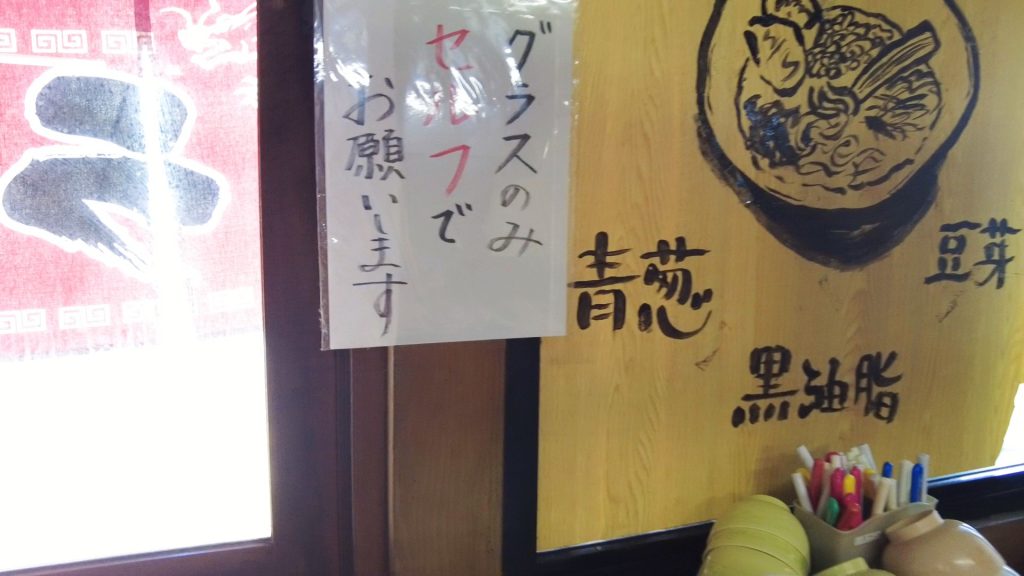 グラスのみ
セルフで
お願いします
豆芽
青葱
黒油脂